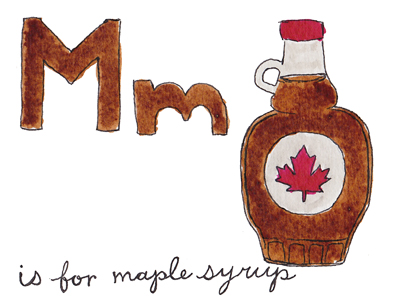 Mm
is for maple syrup